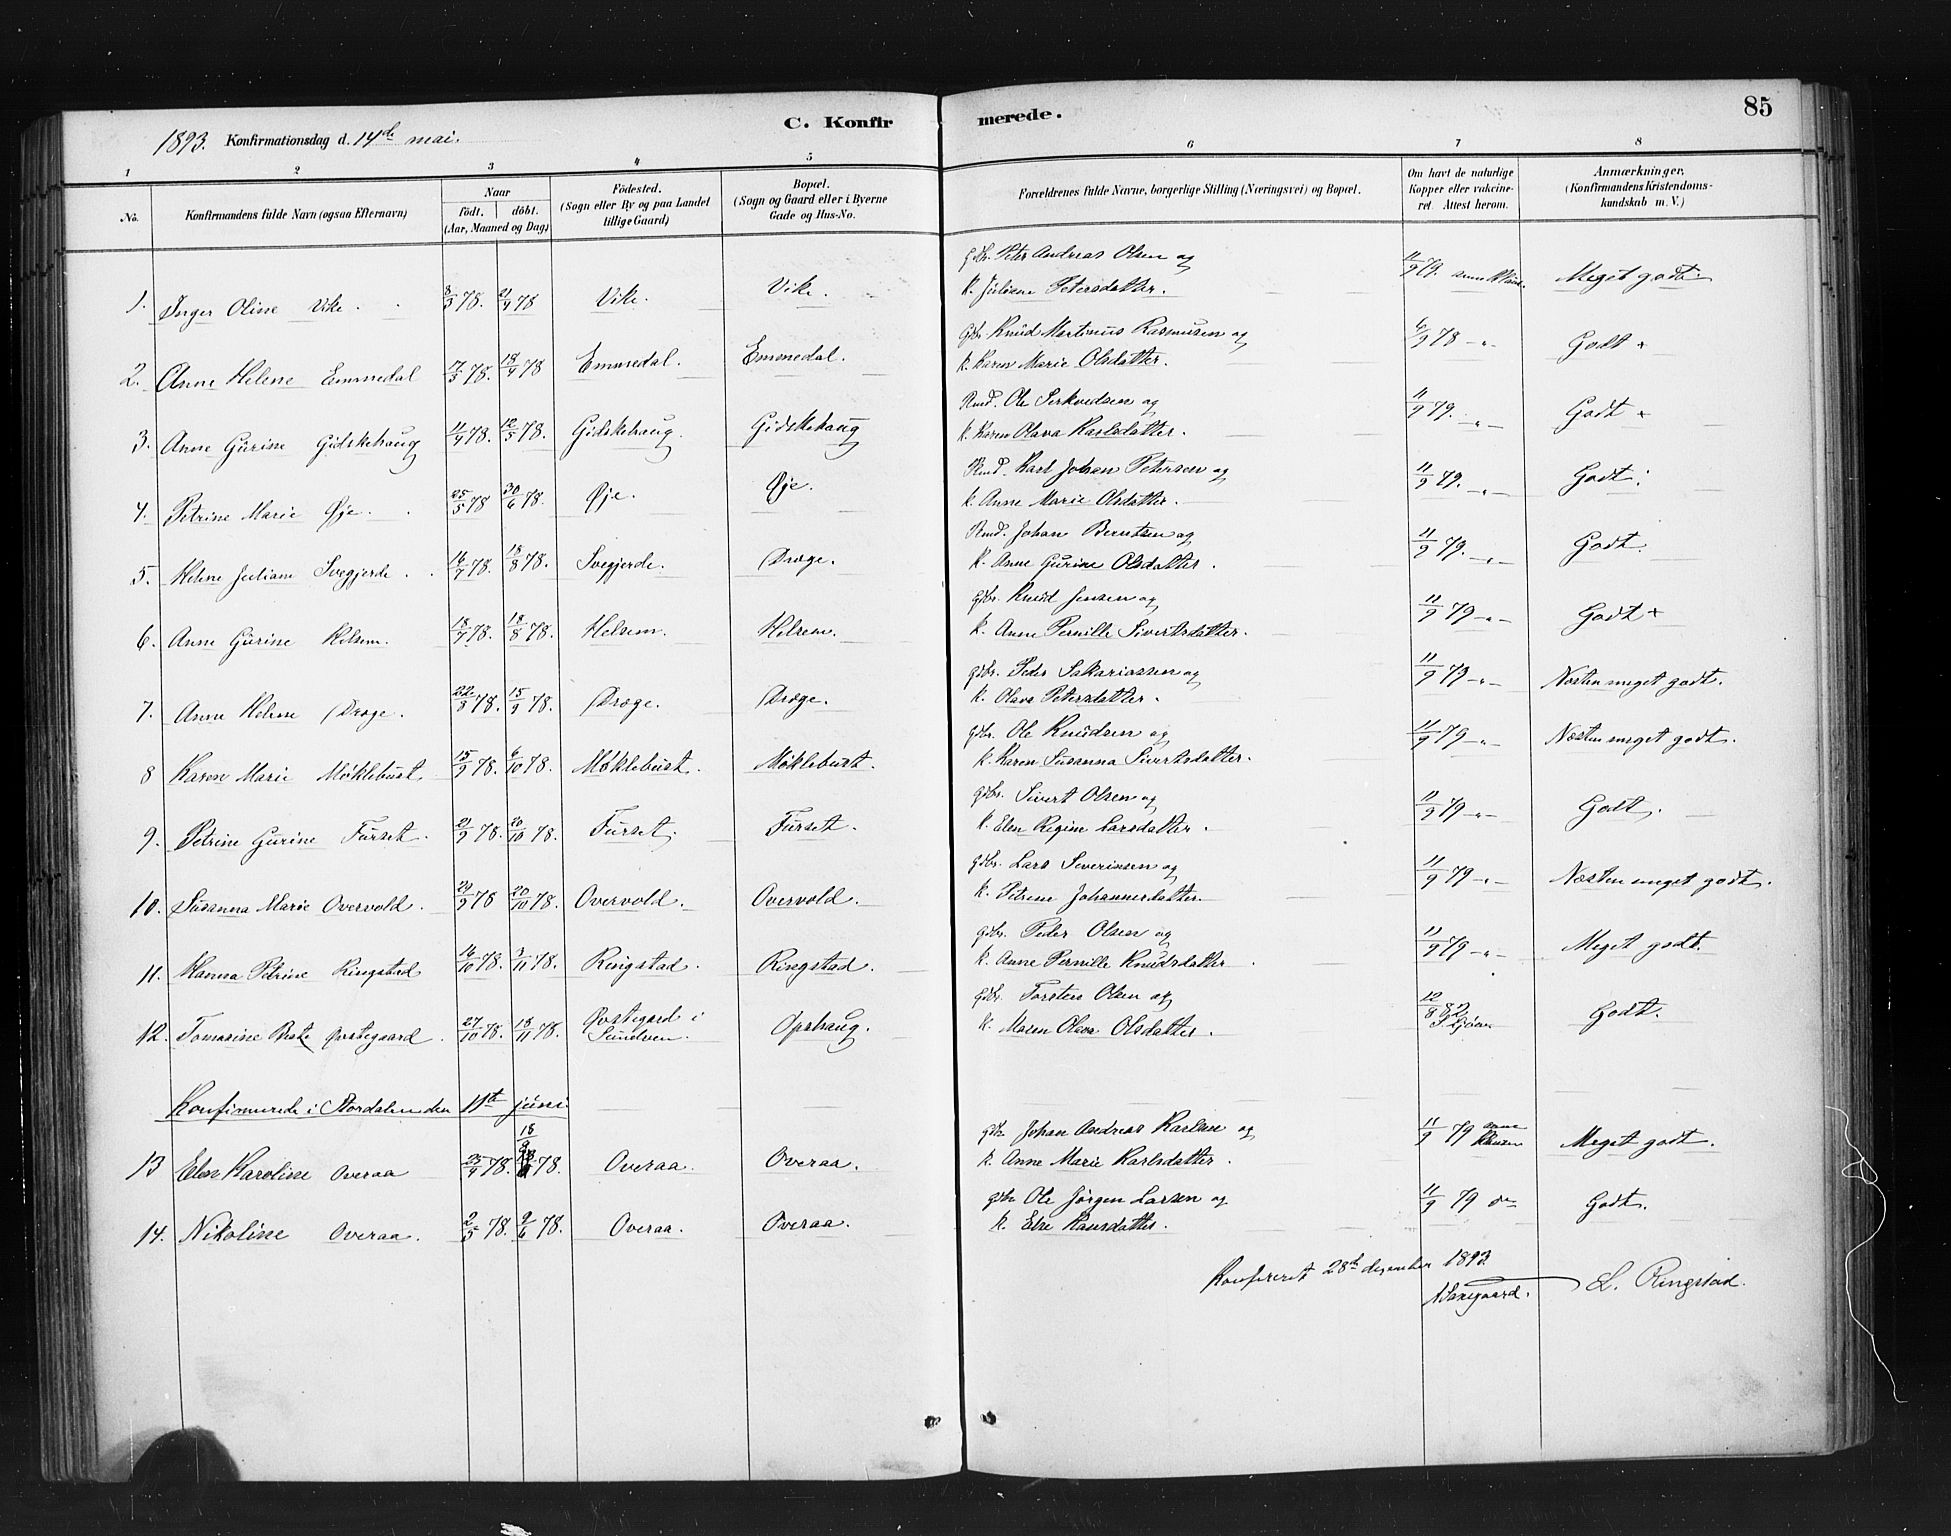 85
C. Konfirmerede.
1893. Konfirmationsdag d. 14de mai.
1 2 3 4 5 6 7 8
No. Konfirmandens fulde Navn (ogsaa Efternavn) Naar født. døbt. (Aar, Maaned og Dag) Fødested. (Sogn eller By og paa Landet tillige Gaard) Bopæl. (Sogn og Gaard eller i Byerne Gade og Hus-No. Forældrenes fulde Navne, borgerlige Stilling (Næringsvei) og Bopæl. Om havt de naturlige Kopper eller vakcineret. Attest herom. Anmærkninger. (Konfirmandens Kristendomskundskab m. V.)
1. Inger Oline Vike. 8/3 78. 21/4 78 Vike. Vike. Gdbr. Peter Andreas Olsen og k. Juliane Petersdatter. 11/9 79. Meget godt.
2. Anne Helene Emmedal 17/3 78. 18/4 78 Emmedal. Emmedal. Gdbr. Knud Martinus Rasmusen og k. Karen Marie Olsdatter. 6/9 78 -"- Godt +
3. Anne Gurine Gidskehaug 11/4 78. 12/5 78. Gidskehaug. Gidskehaug Rmd. Ole Sirkvedsen og k. Karen Olava Karlsdatter. 11/9 79. -"- Godt +
4. Petrine Marie Øje. 25/5 78 30/6 78. Øje. Øje. Rmd. Karl Johan Petersen og k. Anne Marie Olsdatter. 11/9 79. -"- Godt.
5. Helene Juliane Svegjerde. 16/7 78. 18/8 78. Svegjerde. Drøge. Rmd. Johan Berntsen og k. Anne Gurine Olsdatter. 11/9 79. -"- Godt.
6. Anne Gurine Helsem. 18/7 78. 18/8 78. Helsem. Helsem. gdbr. Knud Jensen og k. Anne Pernille Sivertsdatter. 11/9 79 -"- Godt +
7. Anne Helene Drøge. 22/3 78. 15/9 78. Drøge. Drøge. gdbr. Peder Sakariassen og k. Olava Petersdatter. 11/9 79 -"- Næsten meget godt.
8 Karen Marie Møklebust 15/9 78. 6/10 78. Møklebust. Møklebust. gdbr. Ole Knudsen og k. Karen Susanna Sivertsdatter. 11/9 79 -"- Næsten meget godt.
9. Petrine Gurine Furset. 21/9 78. 20/10 78. Furset. Furset. gdbr. Sivert Olsen og k. Elen Regine Larsdatter. 11/9 79 -"- Godt.
10. Susanna Marie Overvold. 24/9 78 20/10 78. Overvold. Overvold. gdbr. Lars Severinsen og k. Petrine Johannesdatter. 11/9 79 -"- Næsten meget godt.
11. Hanna Petrine Ringstad 16/10 78. 3/11 78. Ringstad. Ringstad. gdbr. Peder Olsen og k. Anne Pernille Knudsdatter. 11/9 79 -"- Meget godt.
12. Tomasine Beate Øvstegaard. 27/10 78. 18/11 78. Øvstegard i Sundven. Opshaug. gdbr. Torsten Olsen og k. Maren Olava Olsdatter. 12/8 82 Godt.
Konfirmerede i Stordalen den 11te juni.
13 Elen Karoline Overaa 25/4 78. 78. Overaa. Overaa. gdbr. Johan Andreas Karlsen og k. Anne Marie Karlsdatter. 11/9 79 Meget godt.
14. Nikoline Overaa. 2/5 78. 9/6 78. Overaa. Overaa. gdbr. Ole Jørgen Larsen og k. Else Hansdatter. 11/9 79 do Godt.
Konfereret 28de desember 1893.
L. Ringstad.